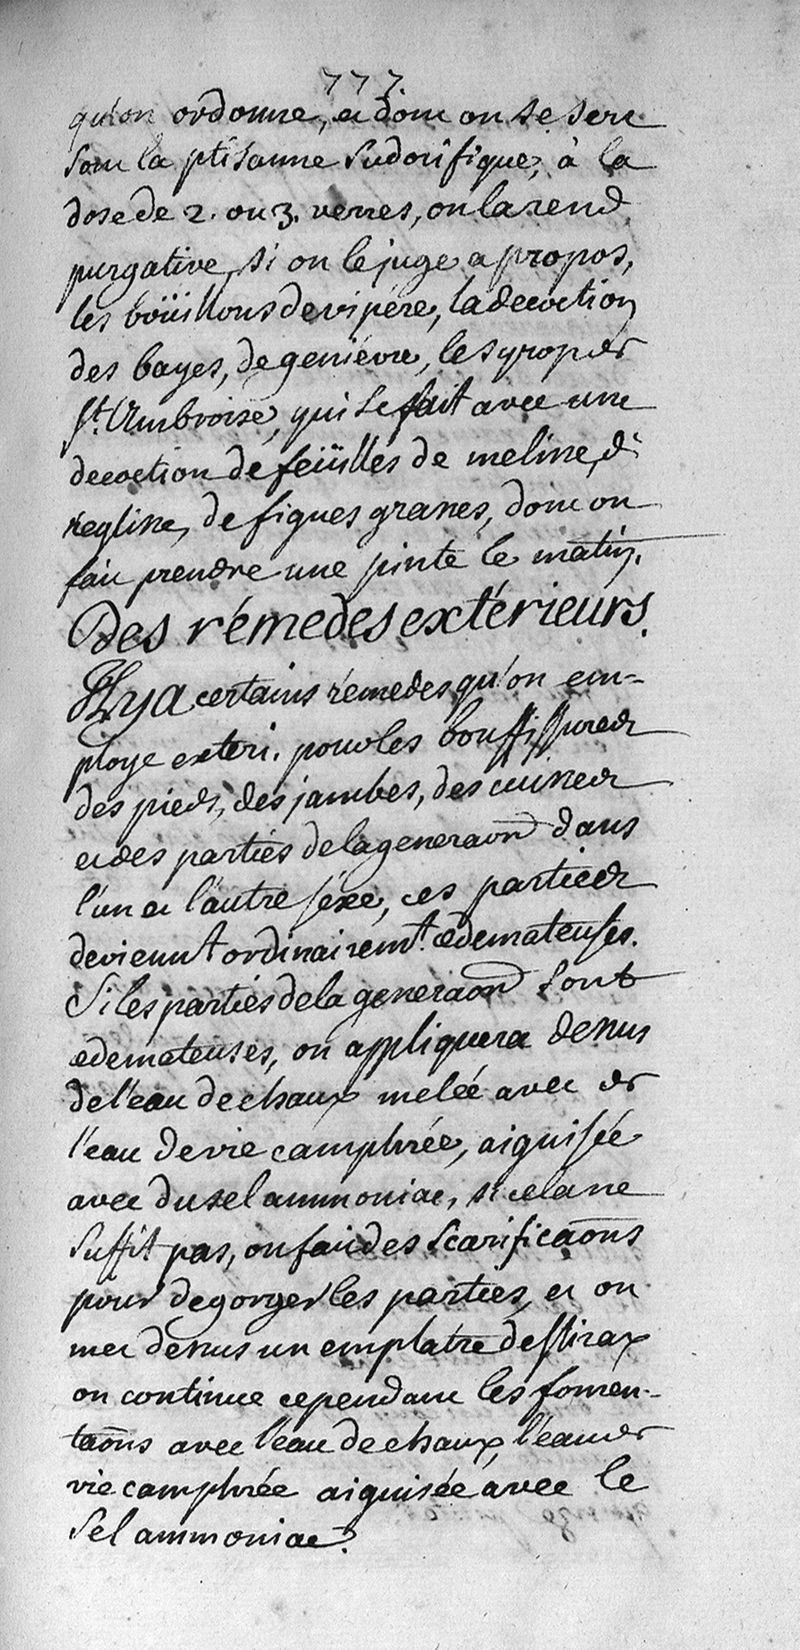 777.
qu'on ordonne, et dont on se sert
sont la ptisanne sudorifique, à la
dose de 2. ou 3. verres, on la rend
purgative, si on le juge a propos,
les boüillons de vipére, la decoction
des bayes, de geniévre, le syrop de
St. Ambroise, qui se fait avec une
decoction de feüilles de meline, de
reglise, de figues grasses, dont on
fait prendre une pinte le matin.
Des rémedes extérieurs.
Il y a certains rémedes qu'on em-
ploye exteri. pour les bouffissures
des pieds, des jambes, des cuisses
et des parties de la generaon dans
l'un et l'autre séxe, ces parties
devienn't ordinairemt. œdemateuses.
Si les parties de la generaon sont
œdemateuses, on appliquera dessus
de l'eau de chaux melée avec de
l'eau de vie camphrée, aiguisée
avec du sel ammoniac, si cela ne
suffit pas, on fait des scarificaons
pour degorger les parties, et on
met dessus un emplatre de stirax
on continue cependant les fomen-
taons avec l'eau de chaux, l'eau de
vie camphrée aiguisée avec le
sel ammoniac.